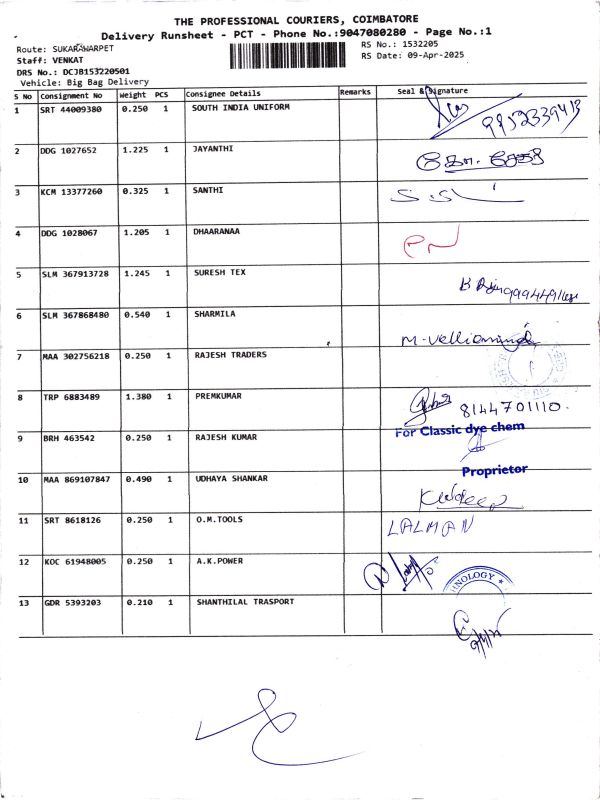 THE PROFESSIONAL COURIERS, COIMBATORE
Delivery Runsheet - PCT - Phone No.:9047080280 - Page No.:1
Route: SUKARAWARPET
RS No.: 1532205
Staff: VENKAT
RS Date: 09-Apr-2025
DRS No.: DCJB153220501
Vehicle: Big Bag Delivery
S No Consignment No Weight PCS Consignee Details Remarks Seal & Signature
1 SRT 44009380 0.250 1 SOUTH INDIA UNIFORM
9952339413
2 DDG 1027652 1.225 1 JAYANTHI
3 KCM 13377260 0.325 1 SANTHI
4 DDG 1028067 1.205 1 DHAARANAA
5 SLM 367913728 1.245 1 SURESH TEX
6 SLM 367868480 0.540 1 SHARMILA
7 MAA 302756218 0.250 1 RAJESH TRADERS
8 TRP 6883489 1.380 1 PREMKUMAR
8144701110.
For Classic dye chem
9 BRH 463542 0.250 1 RAJESH KUMAR
Proprietor
10 MAA 869107847 0.490 1 UDHAYA SHANKAR
Kuldeep
11 SRT 8618126 0.250 1 O.M.TOOLS LALMAN
12 KOC 61948005 0.250 1 A.K.POWER
13 GDR 5393203 0.210 1 SHANTHILAL TRASPORT